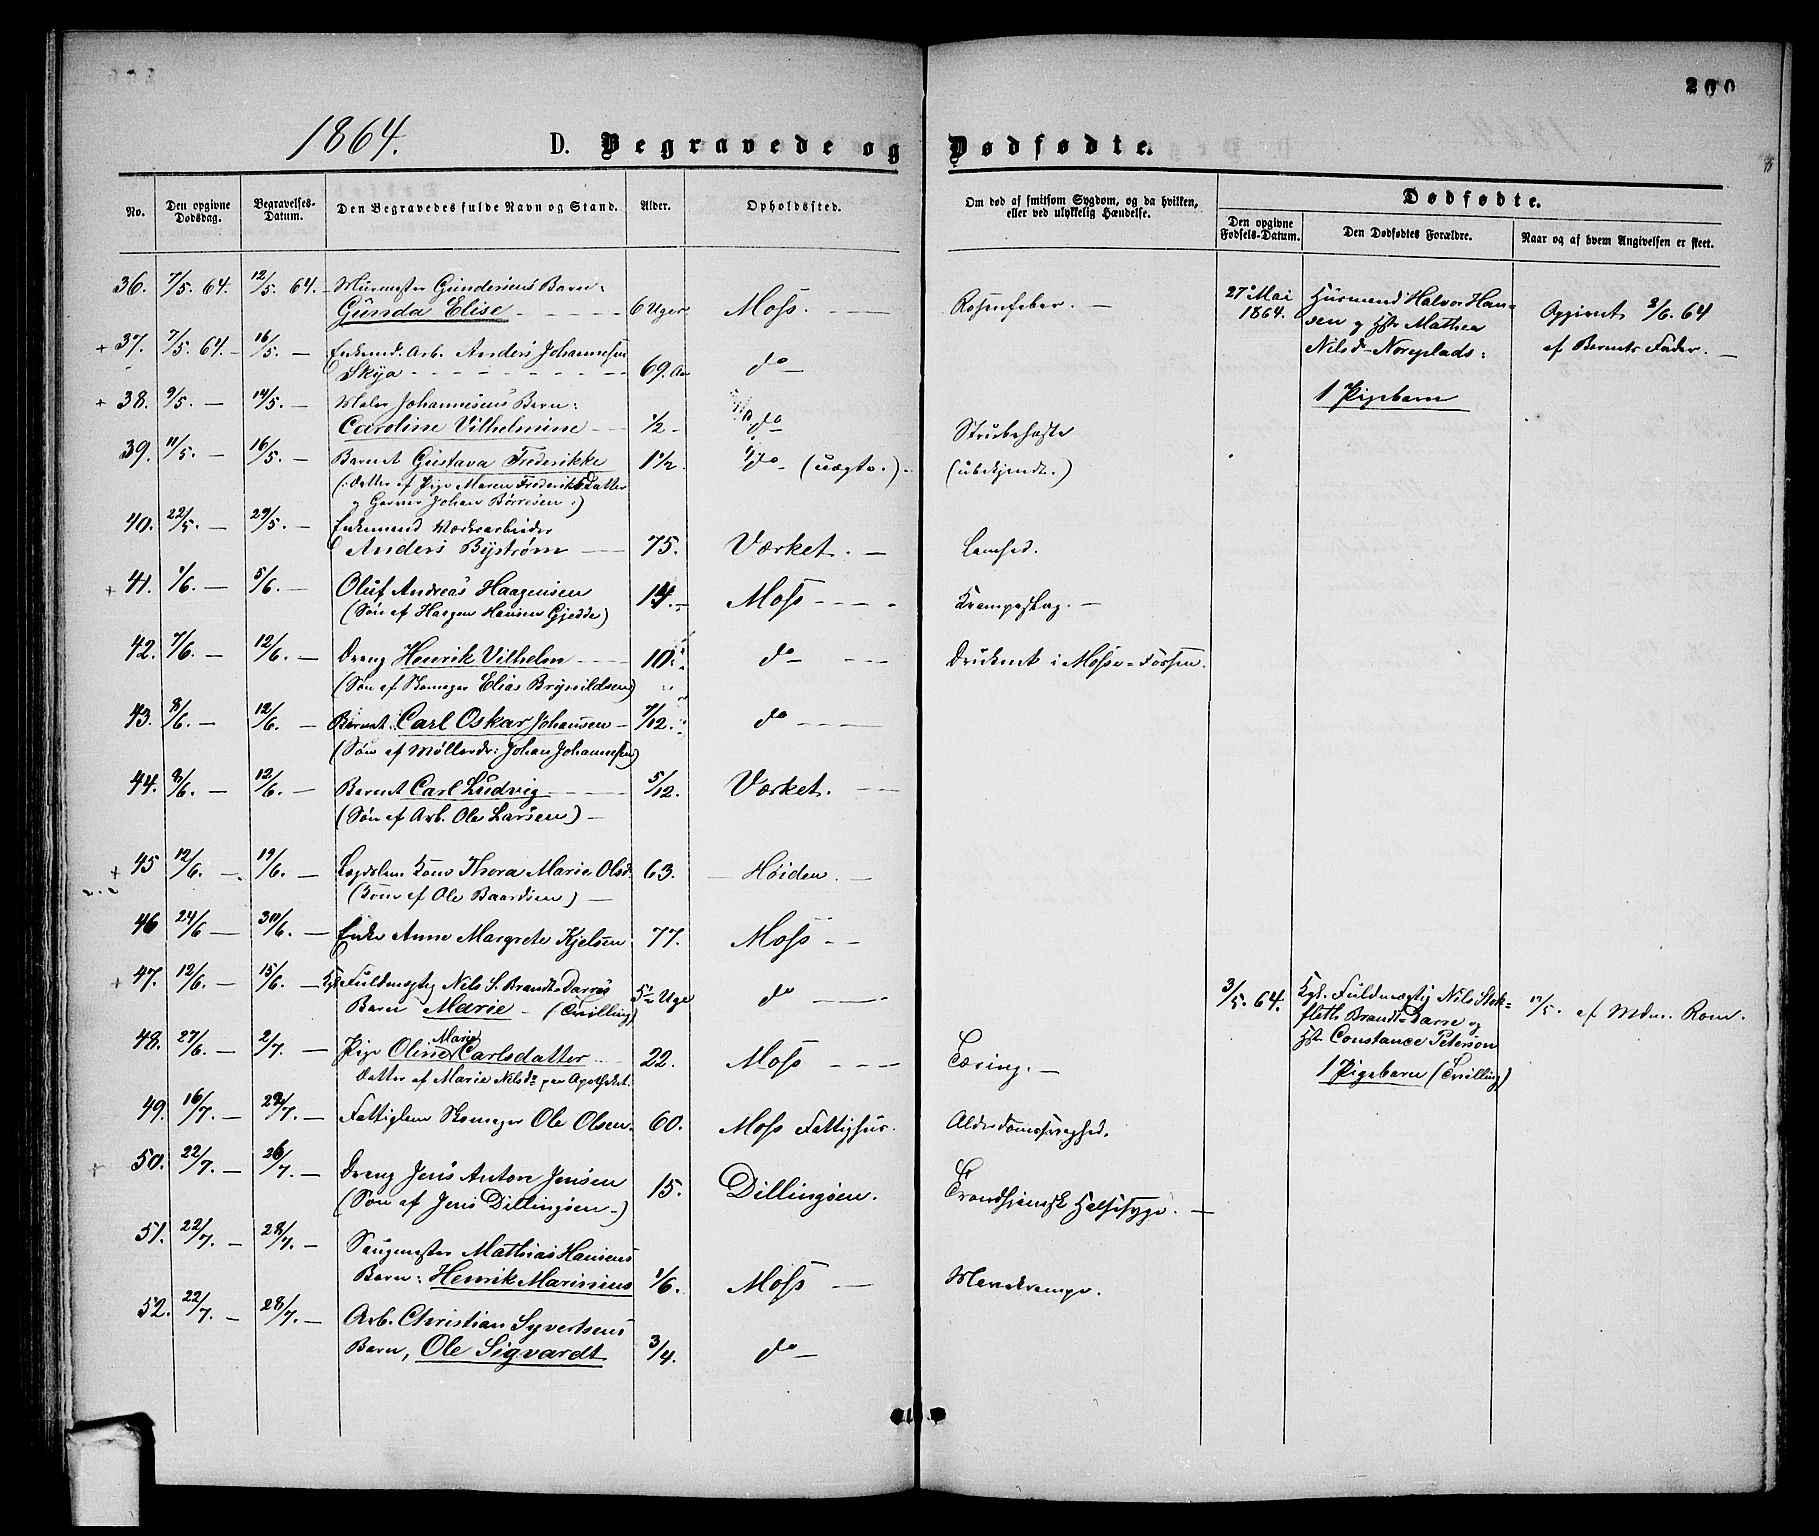 200
1864.
D. Begravede og Dødfødte.
No.
Den opgivne Dødsdag.
Begravelses-Datum.
Den Begravedes fulde Navn og Stand.
Alder.
Opholdssted.
Om død af smitsom Sygdom, og da hvilken,
eller ved ulykkelig Hændelse.
Dødfødte.
Den opgivne Fødsels-Datum.
Den Dødfødtes Forældre.
Naar og af hvem Angivelsen er skeet.
36. 7/5. 64. 12/5. 64. Murmester Gundersens Barn:
Gunda Elise 6 Uger Moss. Rosenfeber.
27de Mai 1864. Husmand Halvor Han-
sen og Hst Mathea
Nilsd. Noreplads:
1 Pigebarn
Opgivet 3/6. 64
af Barnets Fader.
37. 7/5. 64. 16/5. Enkemd. Arb. Anders Johannesen
Skya 69. Aar do
38. 9/5. 14/5. Maler Johannesens Barn:
Caroline Vilhelmine 1/2 do Strubehoste
39. 11/5. 16/5. Barnet Gustava Frederikke 1 1/2. do (uægte.) (ubekjendt.)
(: Datter af Pige Maren FrederiksDatter
og Garver Johan Børresen:)
40. 22/5. 29/5. Enkemand Værksarbeider
Anders Byström 75. Værket. Lamhed.
41. 1/6. 5/6. Oluf Andreas Haagensen 14. Moss Krampeslag.
(Søn af Haagen Hansen Gjedde)
42. 7/6. 12/6. Dreng Henrik Vilhelm 10. do Druknet i Mosse-Fossen.
(Søn af Skomager Elias Brynildsen)
43. 8/6. 12/6. Barnet Carl Oskar Johansen 7/12. do
(Søn af Møllerdr: Johan Johannesen)
44. 8/6. 12/6. Barnet Carl Ludvig 5/12. Værket.
(Søn af Arb. Ole Larsen)
45 12/6. 19/6. Lægdslem Kone Thora Marie Olsd. 63. Høiden.
(Kone af Ole Baardsen)
46 24/6 30/6. Enke Anne Margrete Kjelsen 77. Moss
47. 12/6. 15/6. Kgl. Fuldmægtig Nils S. Brandt-Darres
Barn Marie (Tvilling) 5 Uge do
3/5. 64. Kgl. Fuldmægtig Nils Stok-
fleth Brandt-Darre og
Hst Constance Peterson
1 Pigebarn (Tvilling)
17/5. af Mdm. Rom.
48. 27/6. 2/7. Pige Oline Marie Carlsdatter 22. Moss Tæring.
Datter af Marie Nilsdr paa Apotheket.
49. 16/7. 24/7. Fattiglem Skomager Ole Olsen. 60. Moss Fattighus. Alderdomssvaghed.
50. 22/7. 26/7. Dreng Jens Anton Jensen 15. Dillingøen. Trondhjemsk Halssyge.
(Søn af Jens Dillingøen)
51. 22/7. 28/7. Saugmester Mathias Hansens
Barn: Henrik Marinius 1/6. Moss Mavekrampe.
52. 22/7. 28/7. Arb. Christian Syvertsens
Barn, Ole Sigvardt 3/4. do